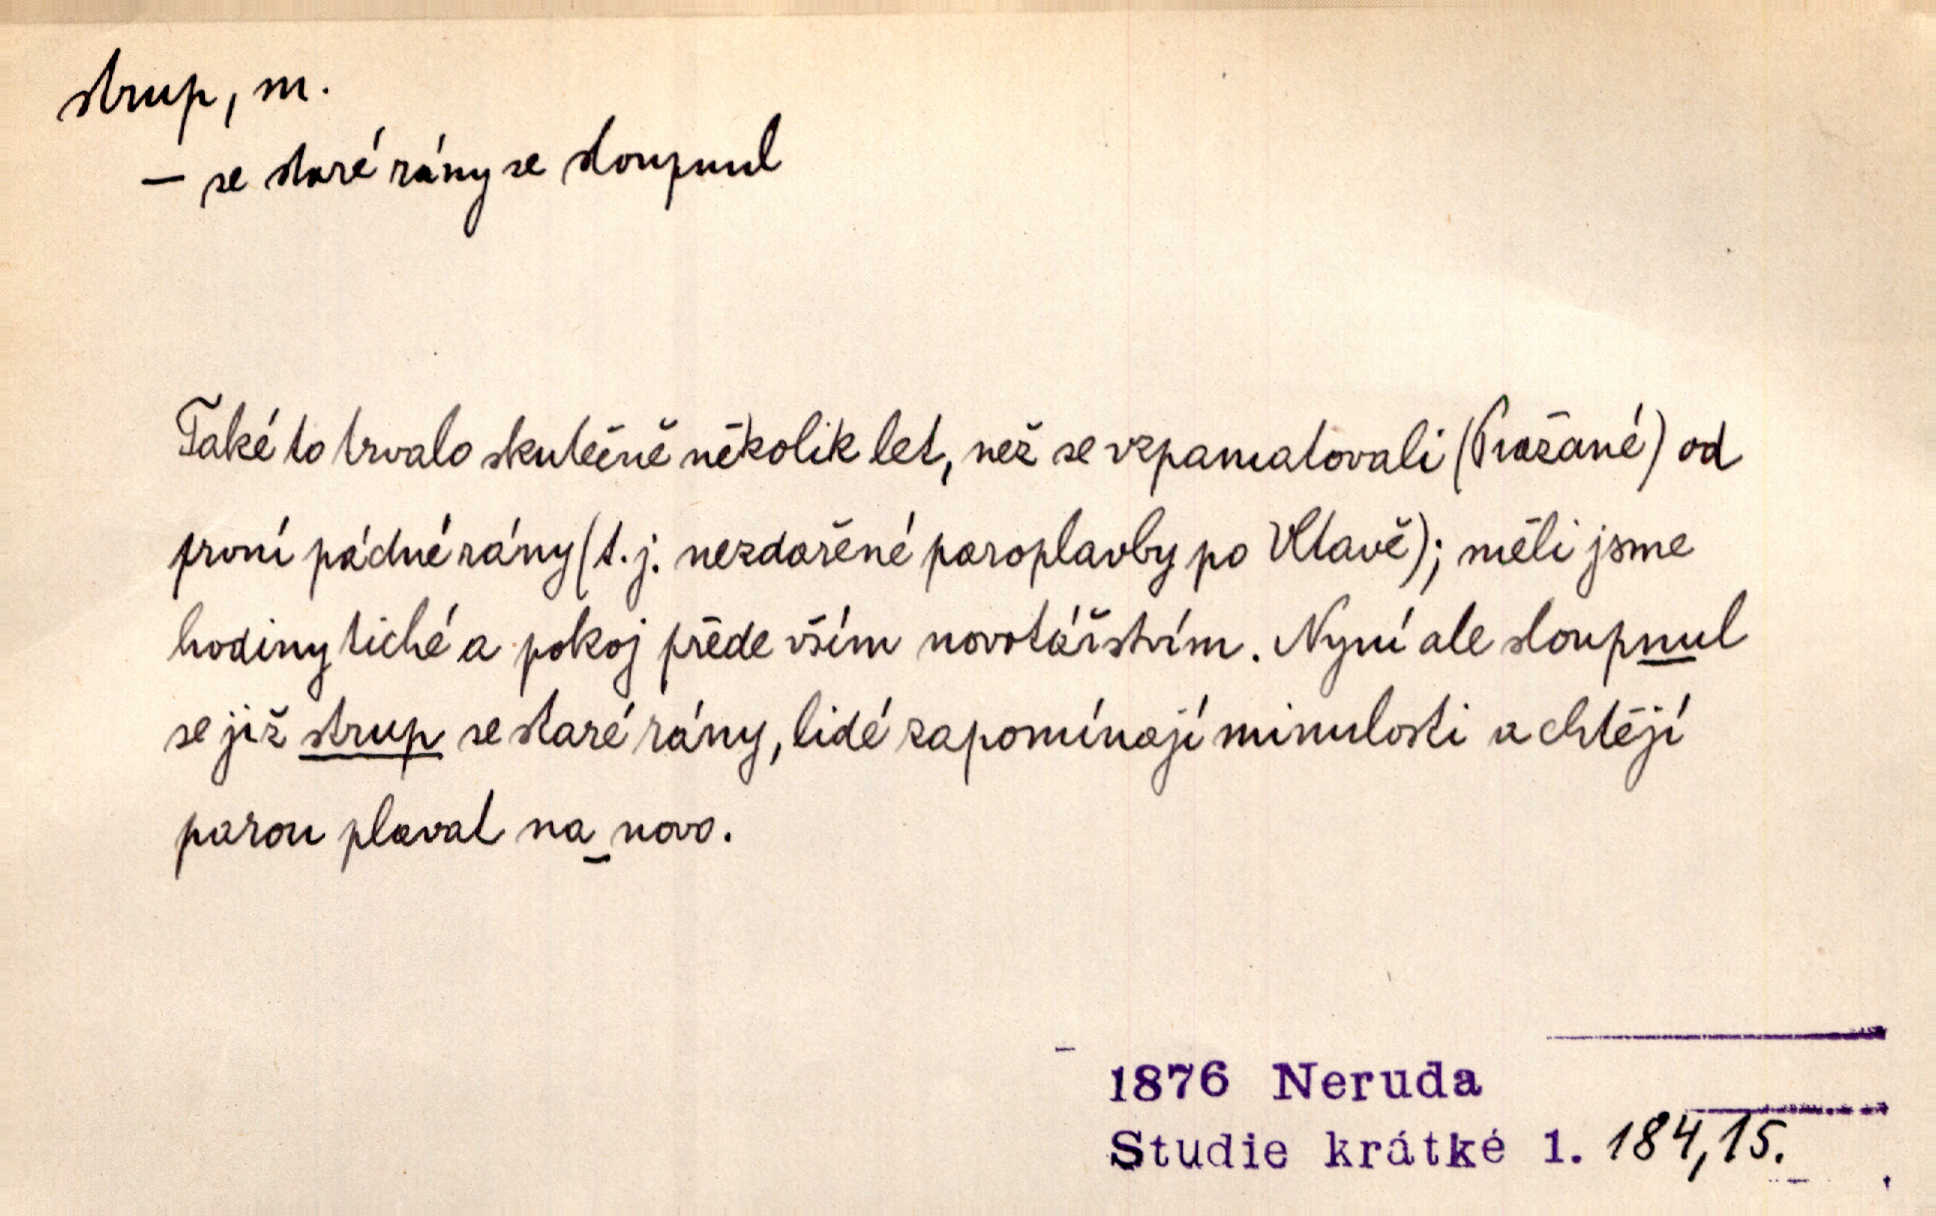 strup, m.
— se staré rány se sloupnul
Také to trvalo skutečně několik let, než se vzpamatovali (Pražané) od
první pádné rány (t. j. nezdařené paroplavby po Vltavě); měli jsme
hodiny tiché a pokoj přede vším novotářstvím. Nyní ale sloupnul
se již strup se staré rány, lidé zapomínají minulosti a chtějí
parou plavat na novo.
1876 Neruda
Studie krátké 1. 184,15.